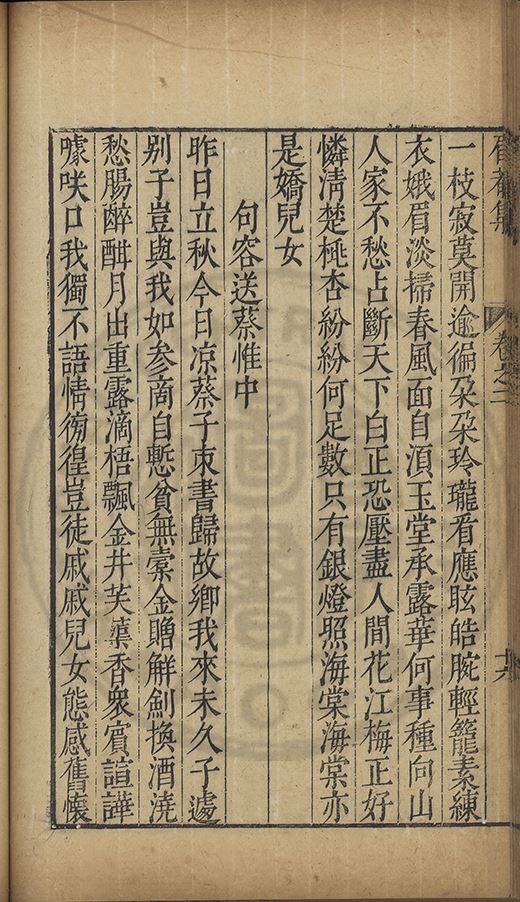 卷之二
一枝寂莫開逾徧朶朶玲瓏看應眩皓腕輕籠素練
衣娥眉淡掃春風面自湏玉堂承露華何事種向山
人家不愁占斷天下白正恐壓盡人間花江梅正好
憐淸楚桃杏紛紛何足數只有銀燈照海棠海棠亦
是嬌兒女
句容送蔡惟中
昨日立秋今日凉蔡子束書歸故鄉我來未久子遽
别子豈與我如参商自慙貧無橐金贈解劍換酒澆
愁腸醉酣月出重露滴梧飄金井芙蕖香衆賓諠譁
噱咲口我獨不語情徬徨豈徒戚戚兒女態感舊懷